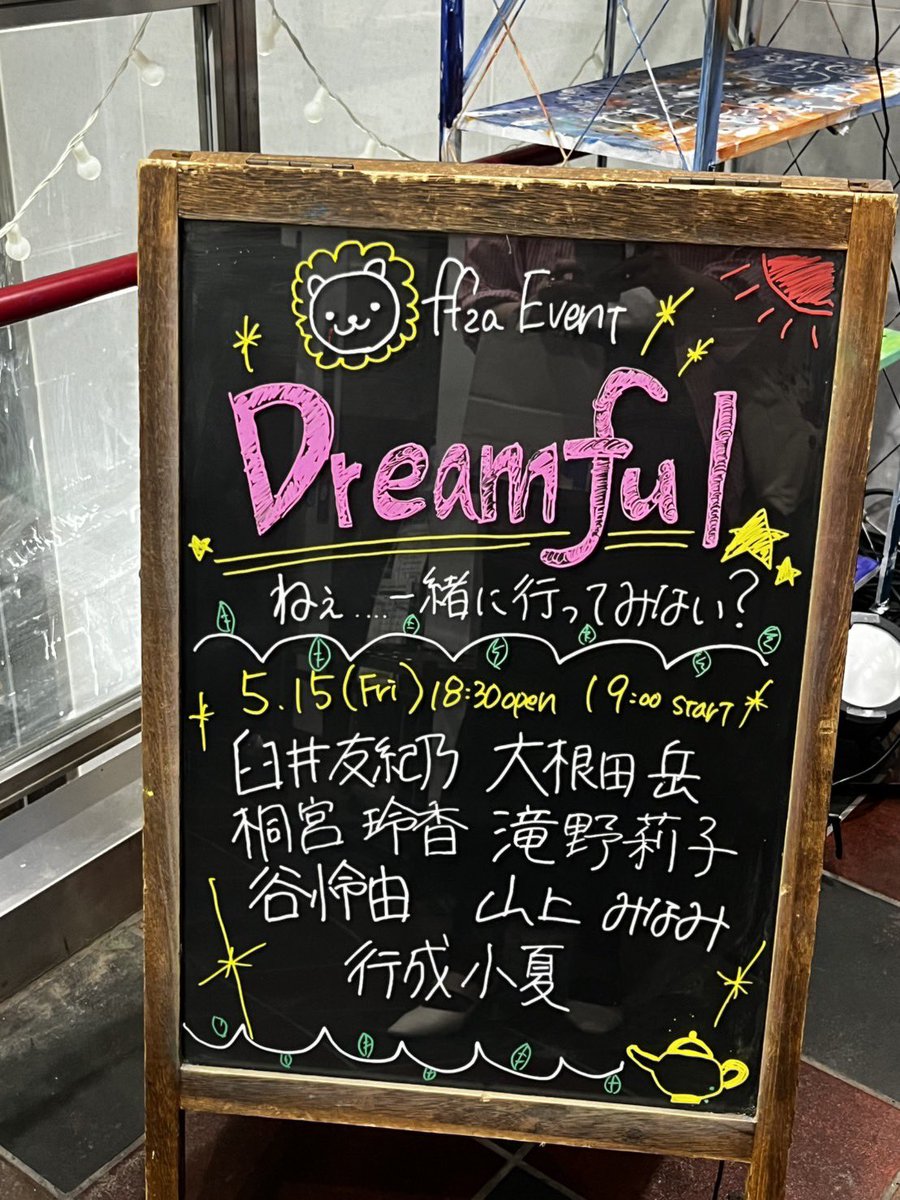 ffza Event
Dreamful
ねぇ....一緒に行ってみない?
5.15(Fri) 18:30 open 19:00 START
臼井友紀乃 大根田 岳
桐宮 玲香 滝野莉子
谷怜由 山上 みなみ
行成 小夏